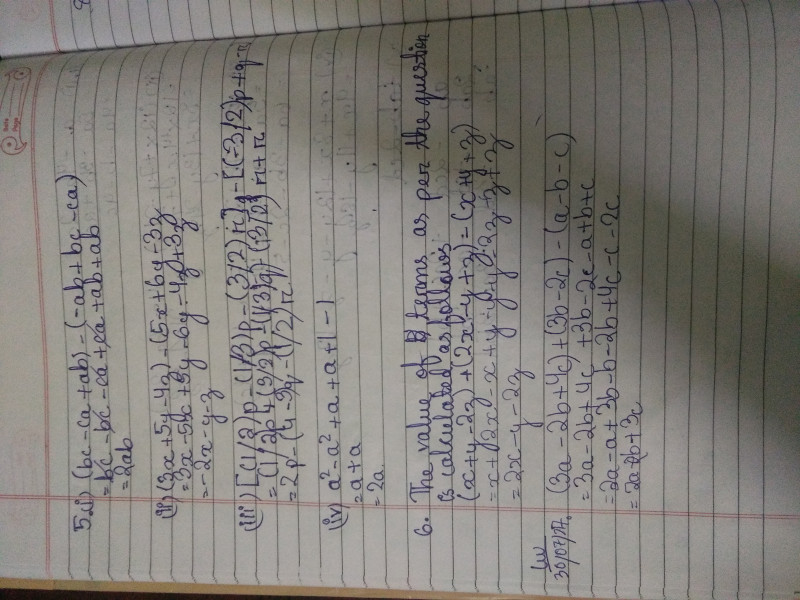 5.i) (bc-ca+ab)-(-ab+bc-ca)
=bc-bc-ca+ca+ab+ab
=2ab
(ii) (3x+5y-4z)-(5x+6y-3z)
=3x-5x+5y-6y-4z+3z
=-2x-y-z
(iii) [(1/2)p-(1/3)q-(3/2)r]-[(-3/2)p+q-r]
=2p-(4-3)q-(1/2)r
(iv) a²-a²+a+a+1-1
=a+a
=2a
6. The value of terms as per the question
is calculated as follows
(x+y-2z)+(2x-y+z)-(x+y+z)
=2x-y-2z
30/07/
(3a-2b+4c)+(3b-2c)-(a-b-c)
=3a-2b+4c+3b-2c-a+b+c
=2a-a+3b-b-2b+4c-c-2c
=2a+2b+3c
Date
Page